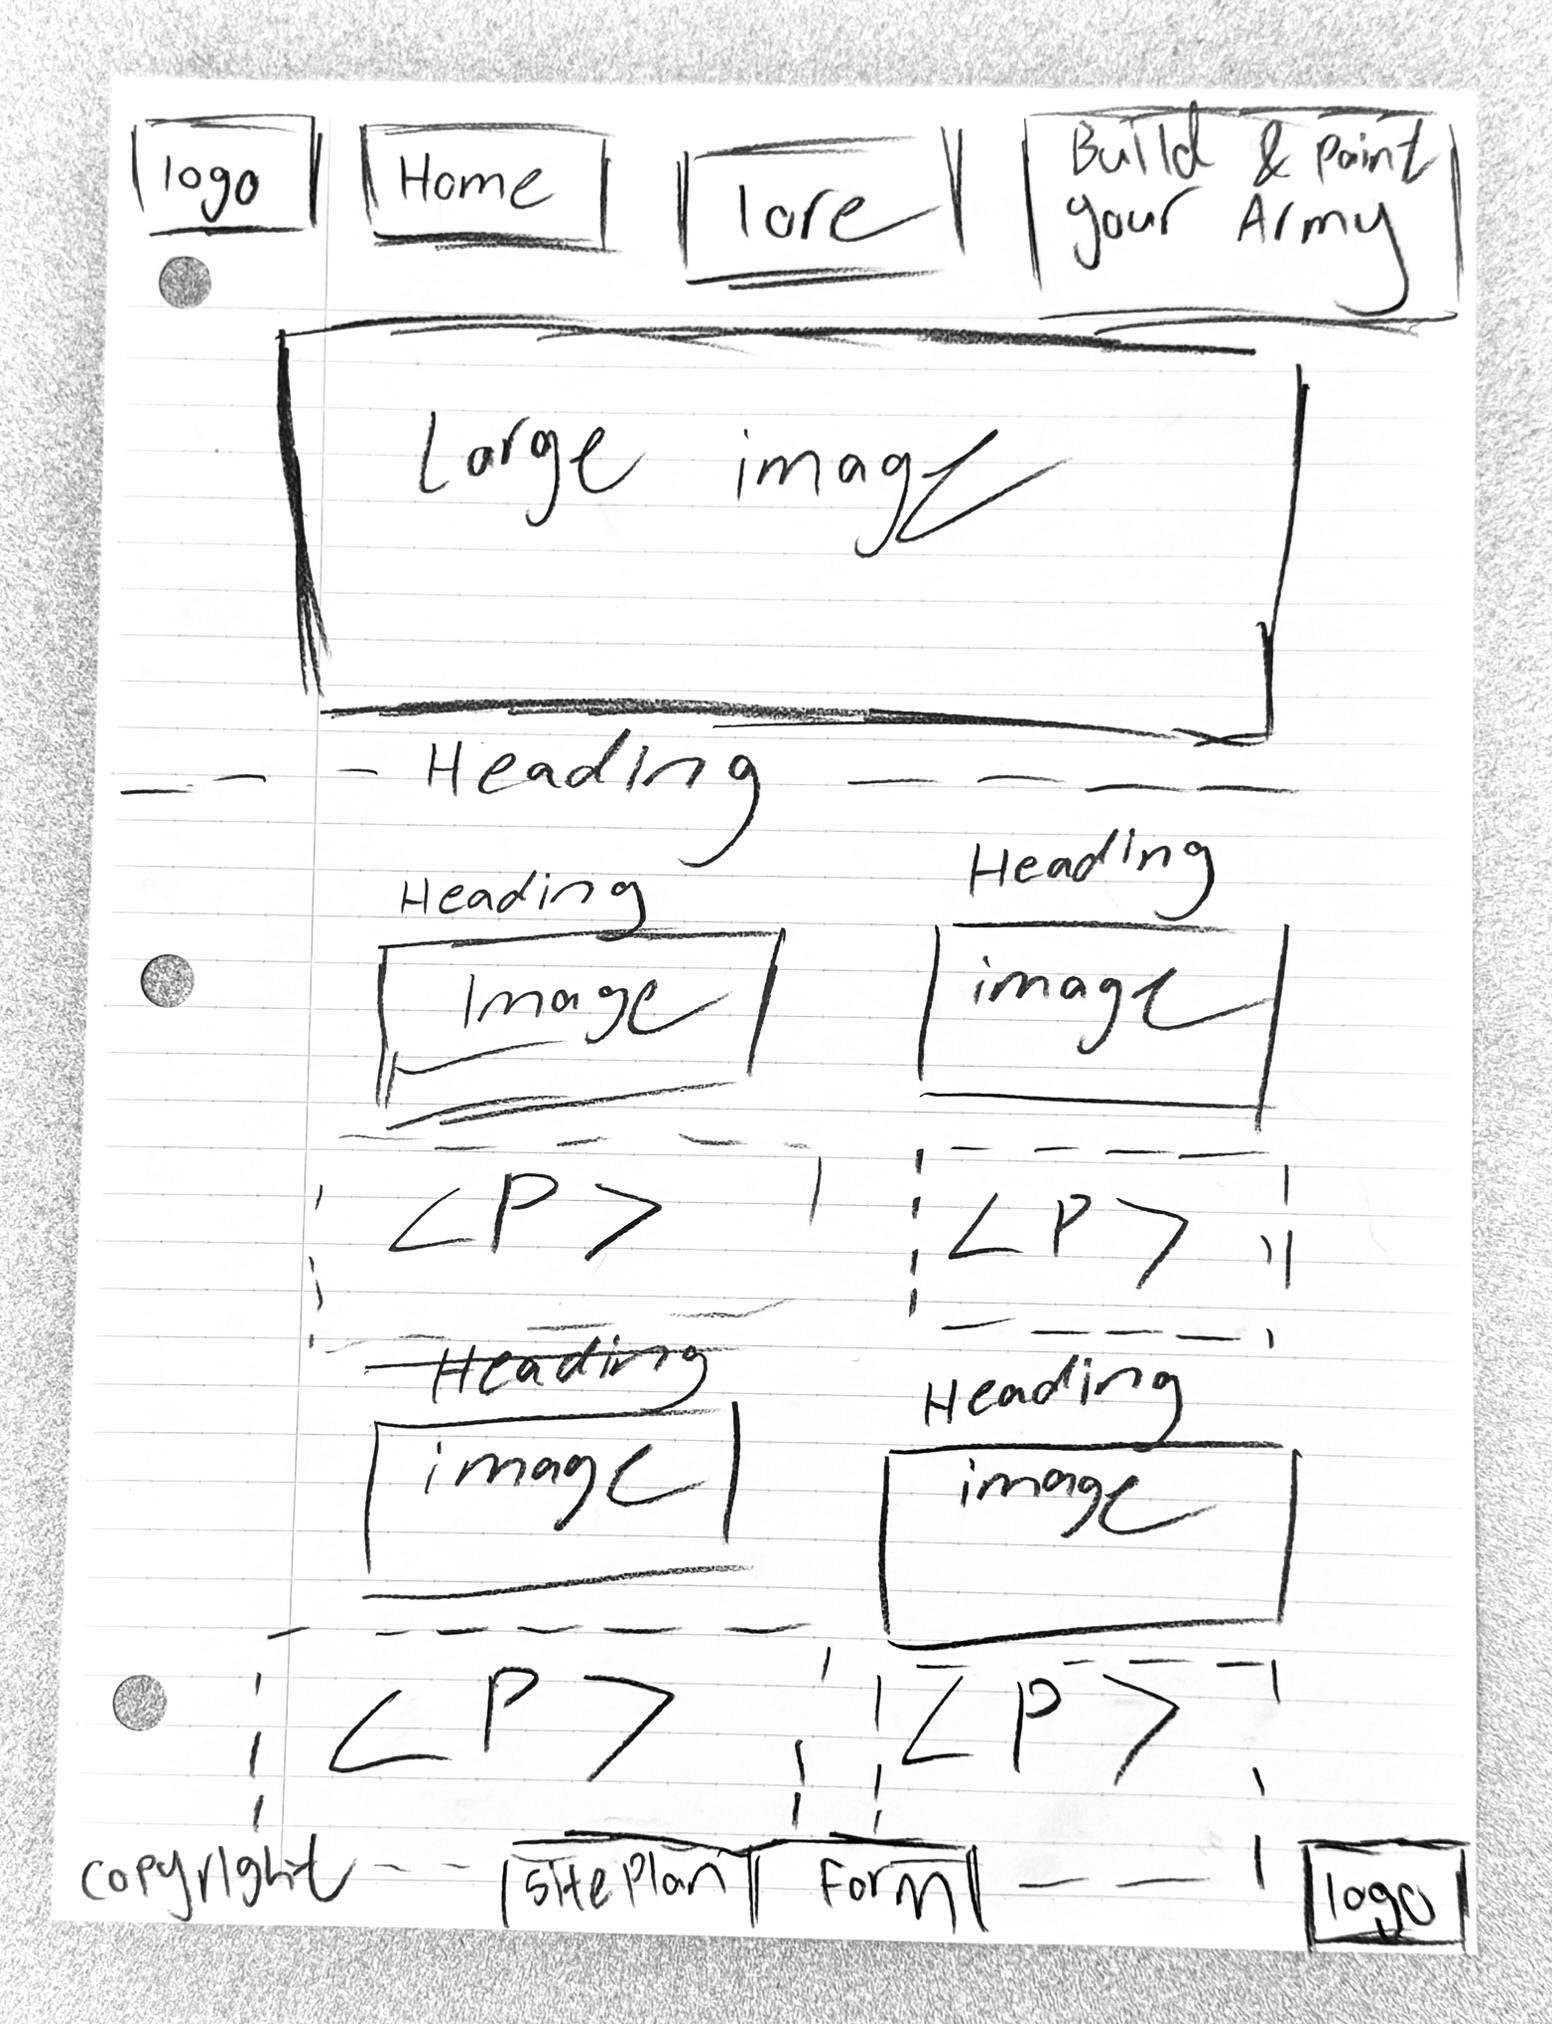 logo Home lore Build & Paint
your Army
Large image
Heading
Heading Heading
Image image
<P> <P>
Heading Heading
image image
<P> <P>
copyright sitePlan Form logo